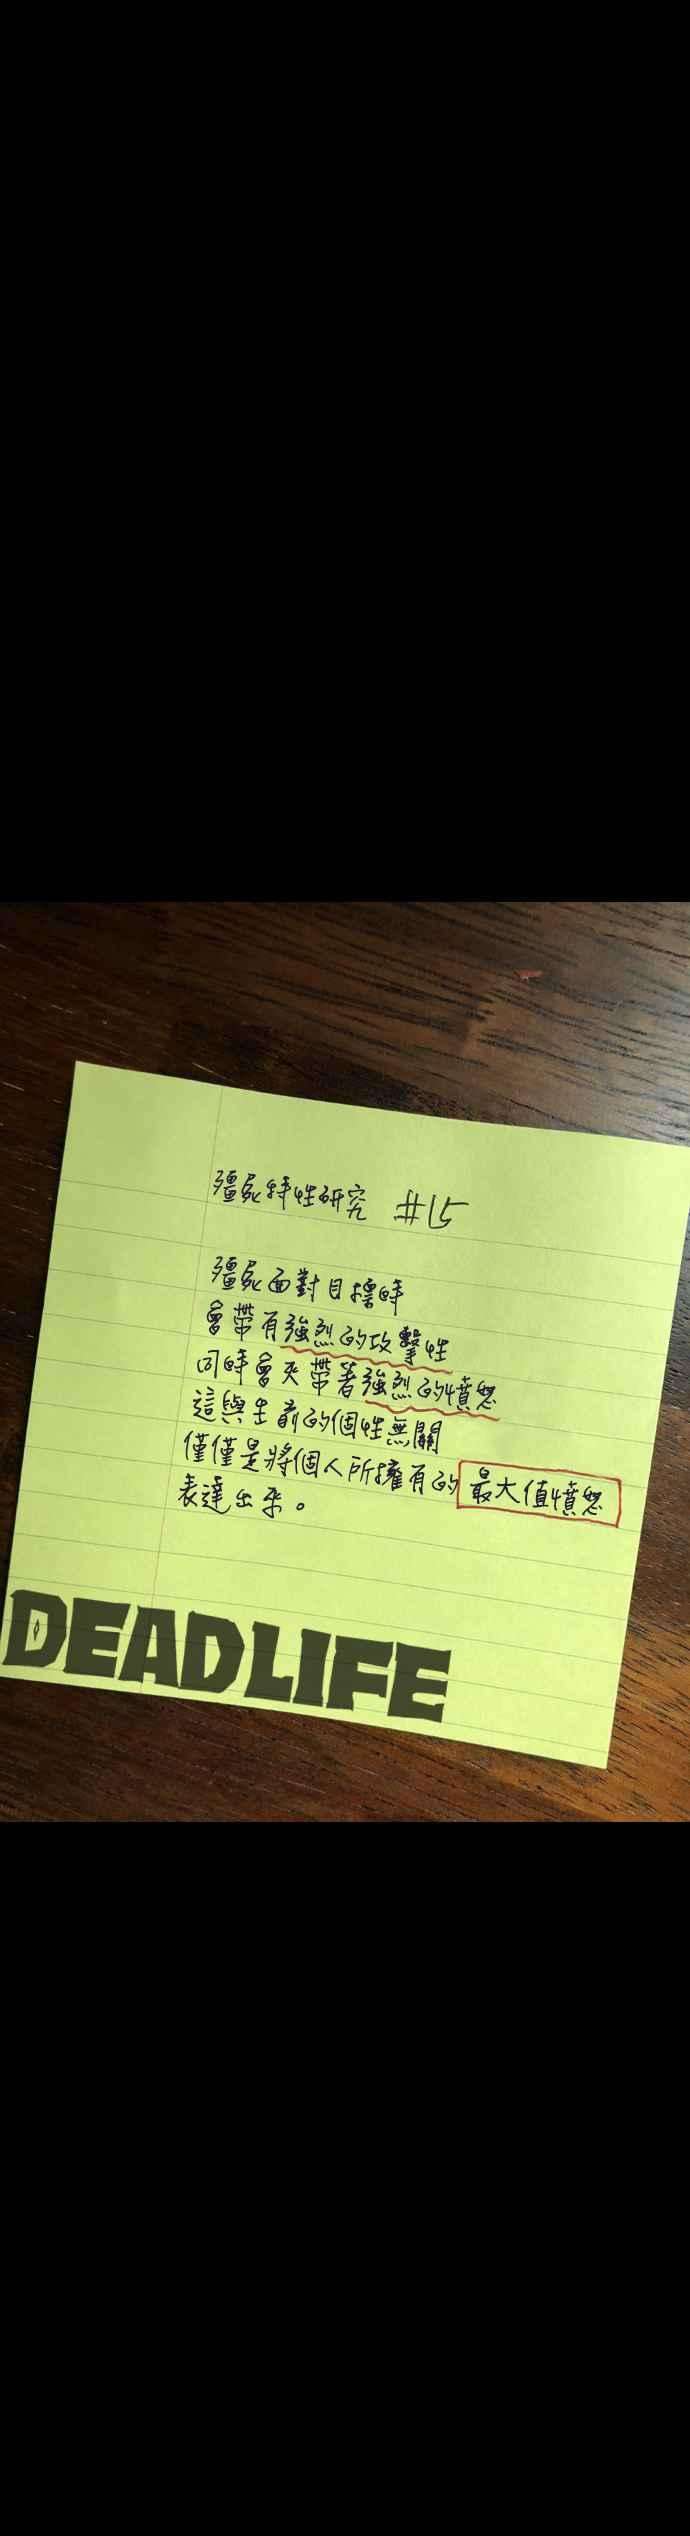 殭屍特性研究 #15
殭屍面對目標時
會帶有強烈的攻擊性
同時會夾帶著強烈的憤怒
這與生前的個性無關
僅僅是將個人所擁有的最大值憤怒
表達出來。
DEADLIFE